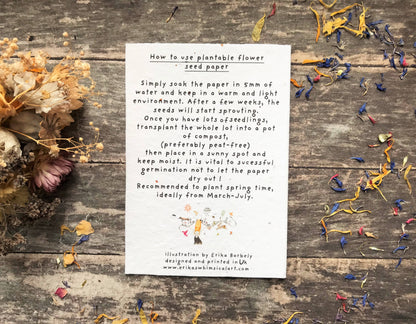 How to use plantable flower
seed paper
Simply soak the paper in 5mm of
water and keep in a warm and light
environment. After a few weeks, the
seeds will start sprouting.
Once you have lots ofseedlings,
transplant the whole lot into a pot
of compost,
(preferably peat-free)
then place in a sunny spot and
keep moist. It is vital to sucessful
germination not to let the paper
dry out!
Recommended to plant spring time,
ideally from March-July.
Illustration by Erika Borbely
designed and printed in UK
www.erikaswhimsicalart.com